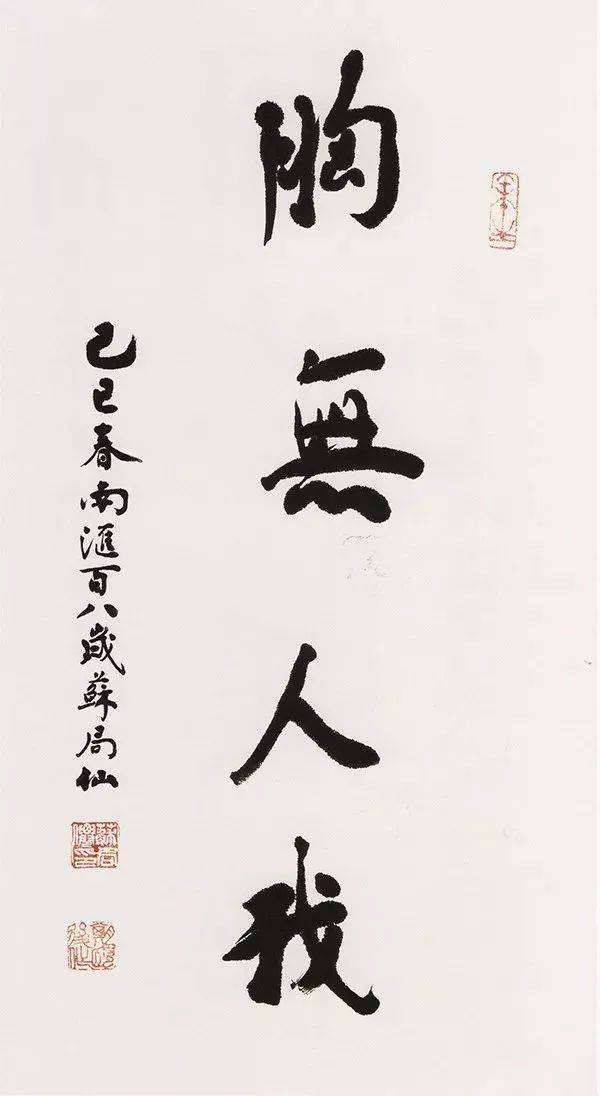 胸無人我
己巳春南滙百八歲蘇局仙